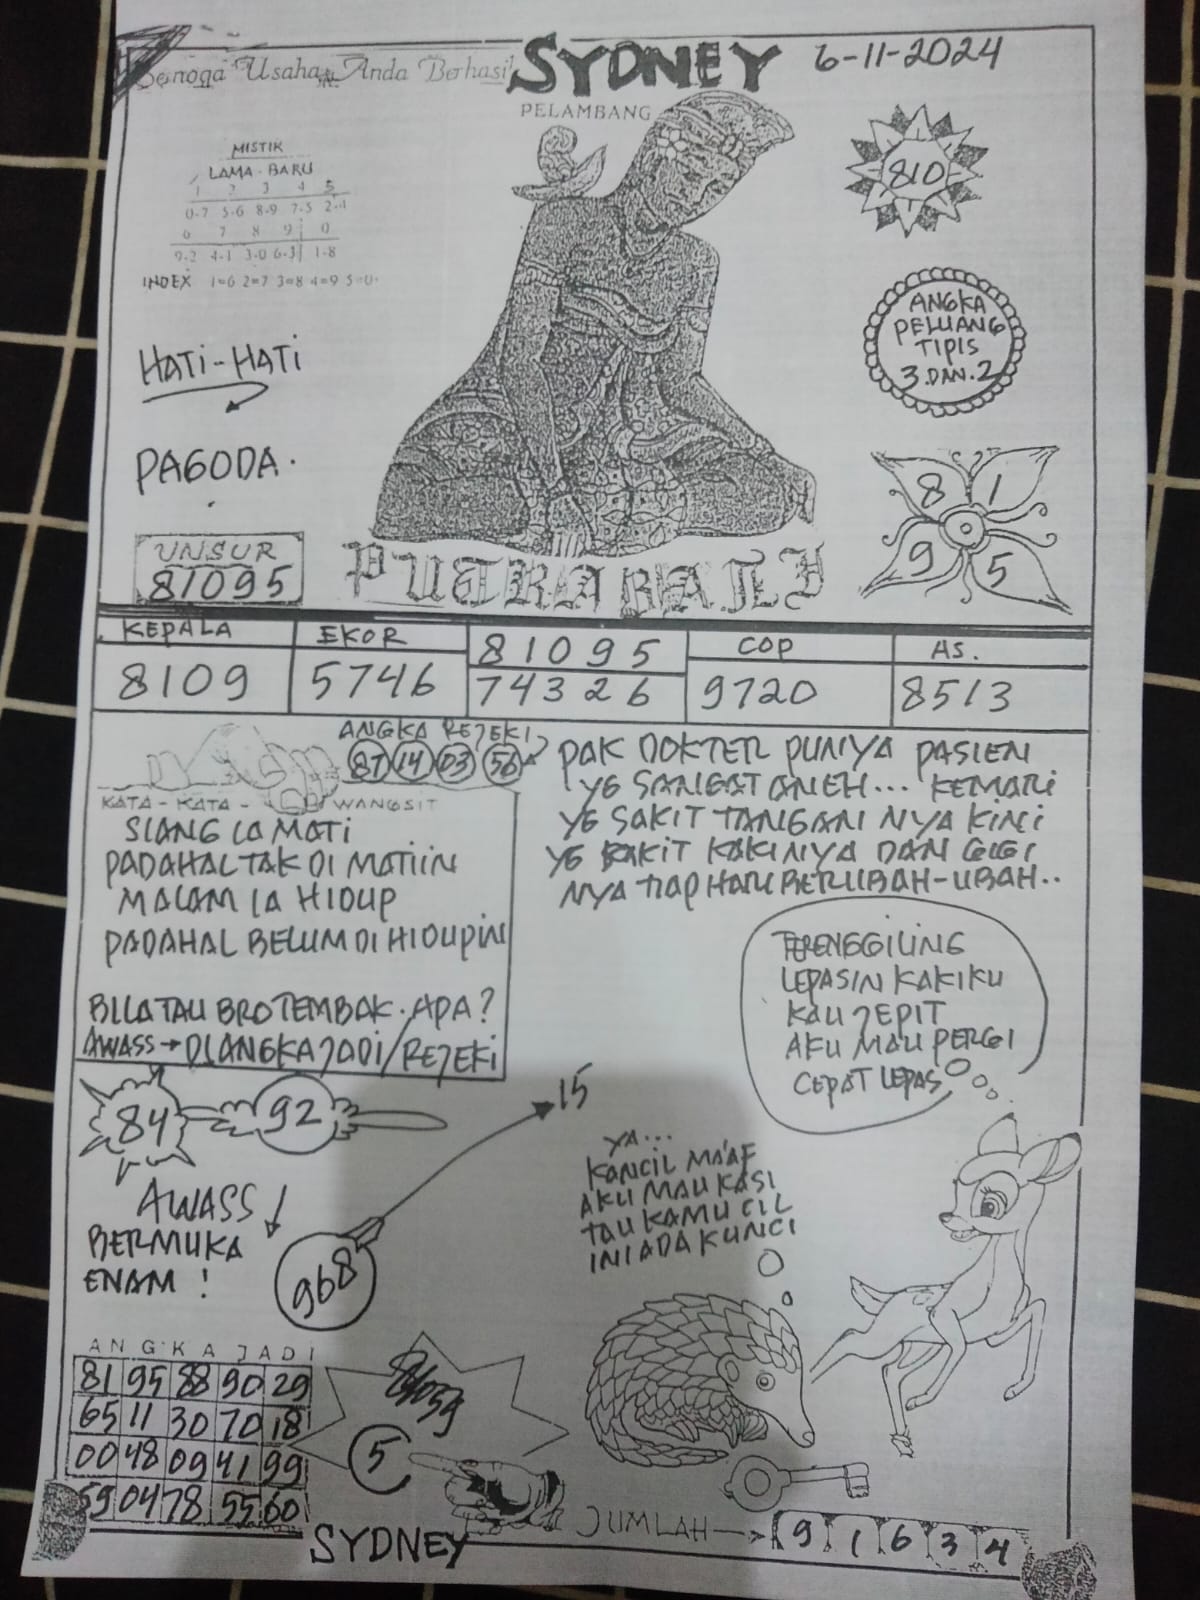 Semoga Usaha Anda Berhasil
SYDNEY
6-11-2024
PELAMBANG
MISTIK
LAMA - BARU
1 2 3 4 5
0-7 5-6 8-9 7-5 2-4
6 7 8 9 0
9-2 4-1 3-0 6-3 1-8
INDEX 1=6 2=7 3=8 4=9 5=0
810
HATI-HATI
ANGKA
PELUANG
TIPIS
3.DAN.2
PAGODA.
8 1
9 5
UNSUR
81095
PUTRA BALI
KEPALA
8109
EKOR
5746
81095
74326
COP
9720
AS.
8513
ANGKA REJEKI
87 14 03 56
KATA - KATA - WANGSIT
SIANG IA MATI
PADAHAL TAK DI MATIIN
MALAM IA HIDUP
PADAHAL BELUM DI HIDUPIN
BILA TAU BRO TEMBAK. APA?
AWASS → DIANGKA JADI/REJEKI
PAK DOKTER PUNYA PASIEN
YG SANGAT ANEH... KEMARI
YG SAKIT TANGAN NYA KINI
YG SAKIT KAKINYA DAN GIGI
NYA TIAP HARI BERUBAH-UBAH..
TERENGGILING
LEPASIN KAKIKU
KAU JEPIT
AKU MAU PERGI
CEPAT LEPAS
84
92
15
YA...
KANCIL MA'AF
AKU MAU KASI
TAU KAMU CIL
INI ADA KUNCI
AWASS
BERMUKA
ENAM !
968
ANGKA JADI
81 95 88 90 29
65 11 30 70 18
00 48 09 41 99
59 04 78 55 60
5
SYDNEY
JUMLAH → 9 1 6 3 4